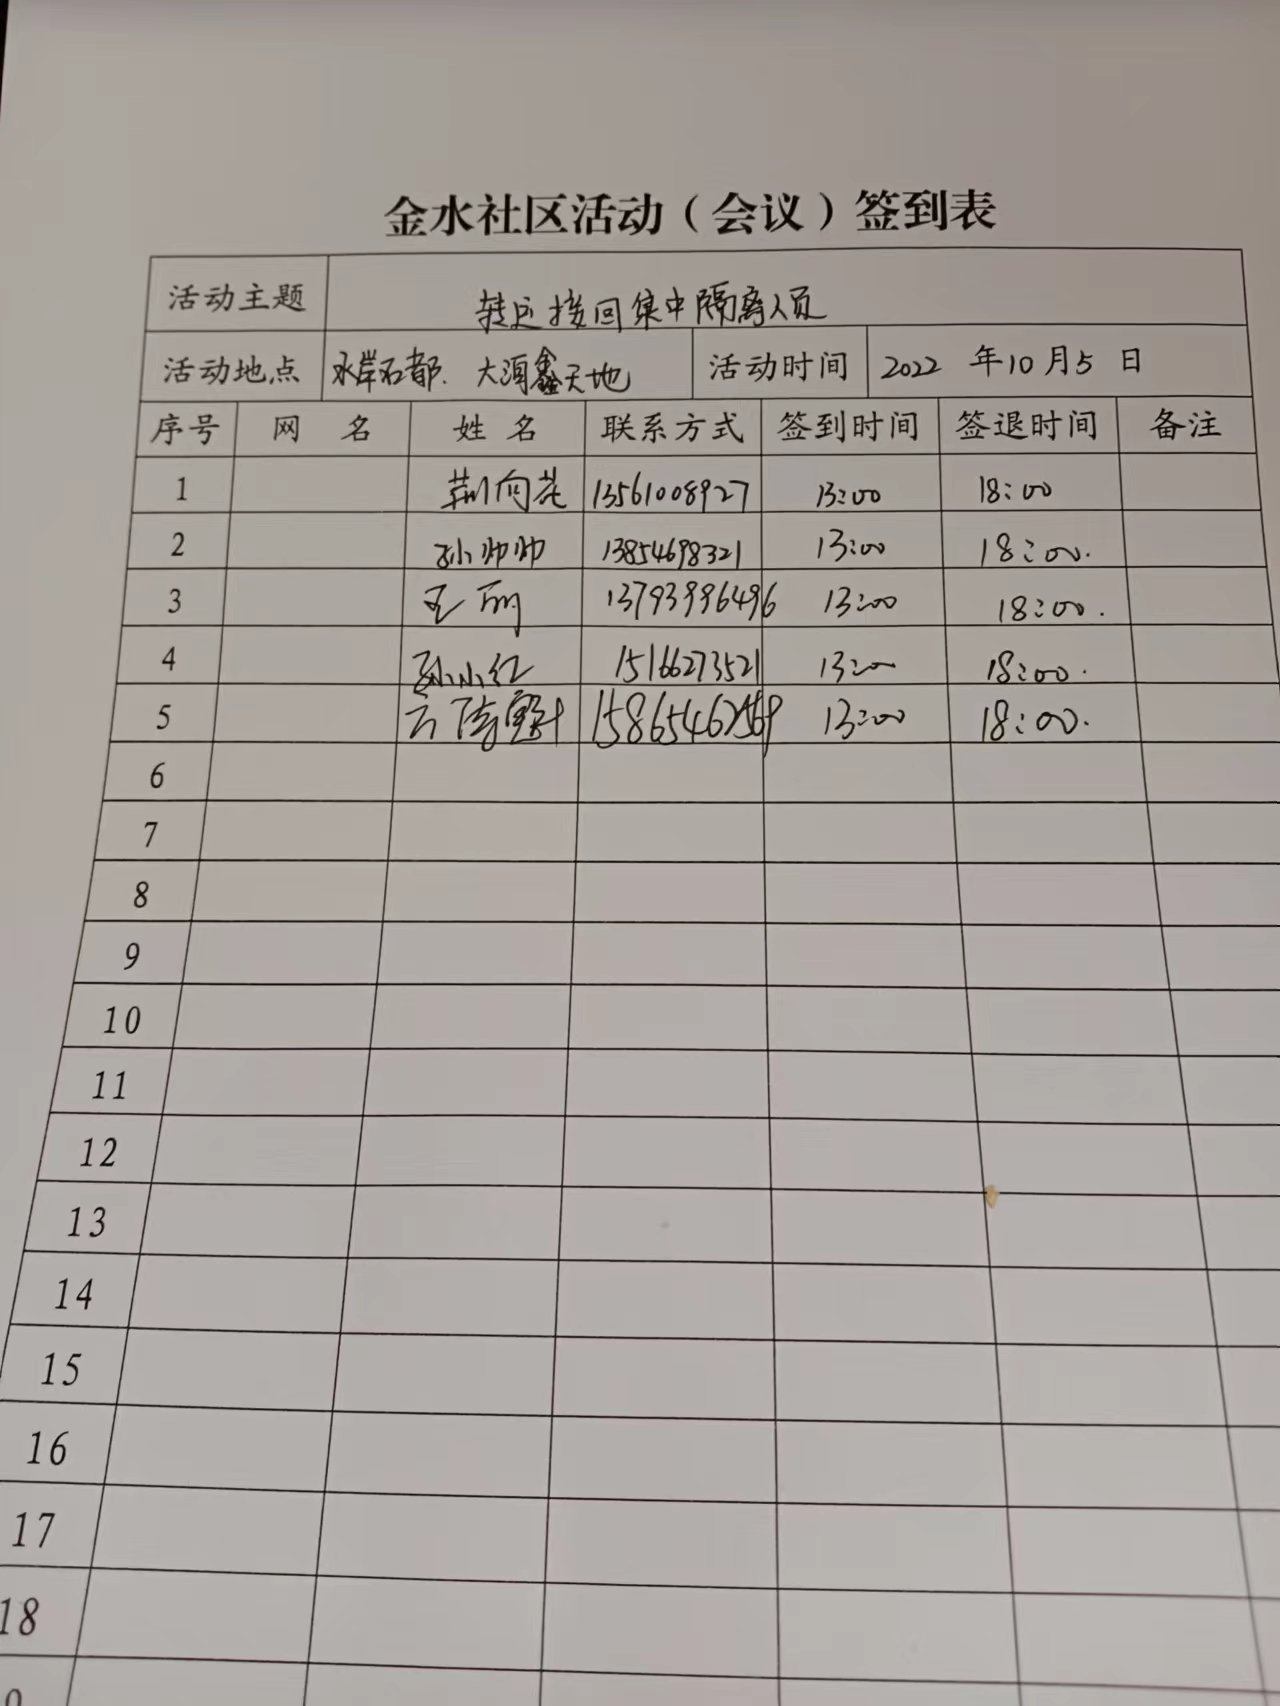 金水社区活动（会议）签到表
活动主题 转运接回集中隔离人员
活动地点 水岸石都. 大润鑫天地 活动时间 2022 年10月5日
序号 网 名 姓 名 联系方式 签到时间 签退时间 备注
1 荆向花 13561008927 13:00 18:00
2 孙帅帅 13854698321 13:00 18:00.
3 王丽 13793996496 13:00 18:00.
4 孙小红 15166273521 13:00 18:00.
5 13:00 18:00.
6
7
8
9
10
11
12
13
14
15
16
17
18